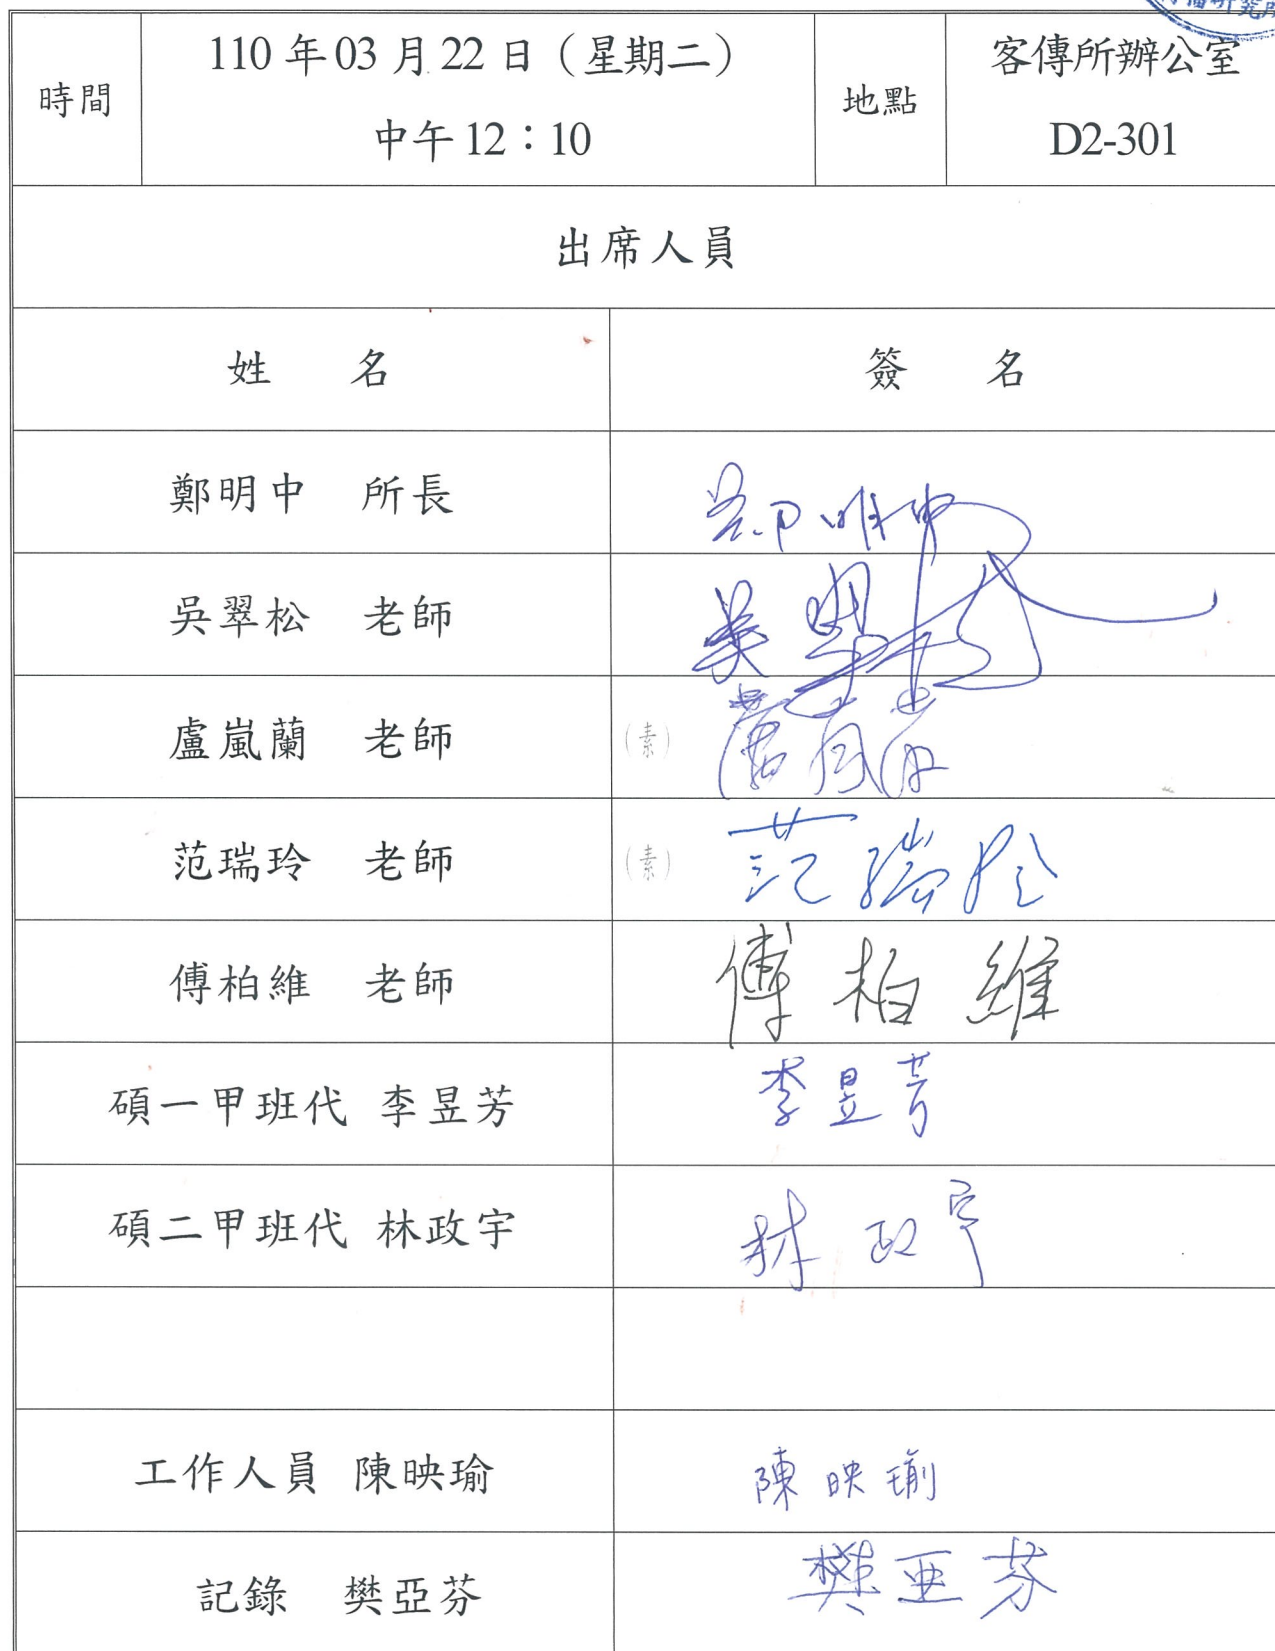 時間
110 年 03 月 22 日（星期二）
中午 12：10
地點
客傳所辦公室
D2-301
出席人員
姓 名
簽 名
鄭明中 所長
鄭明中
吳翠松 老師
吳翠松
盧嵐蘭 老師
（素）
范瑞玲 老師
（素） 范瑞玲
傅柏維 老師
傅柏維
碩一甲班代 李昱芳
李昱芳
碩二甲班代 林政宇
林政宇
工作人員 陳映瑜
陳映瑜
記錄 樊亞芬
樊亞芬